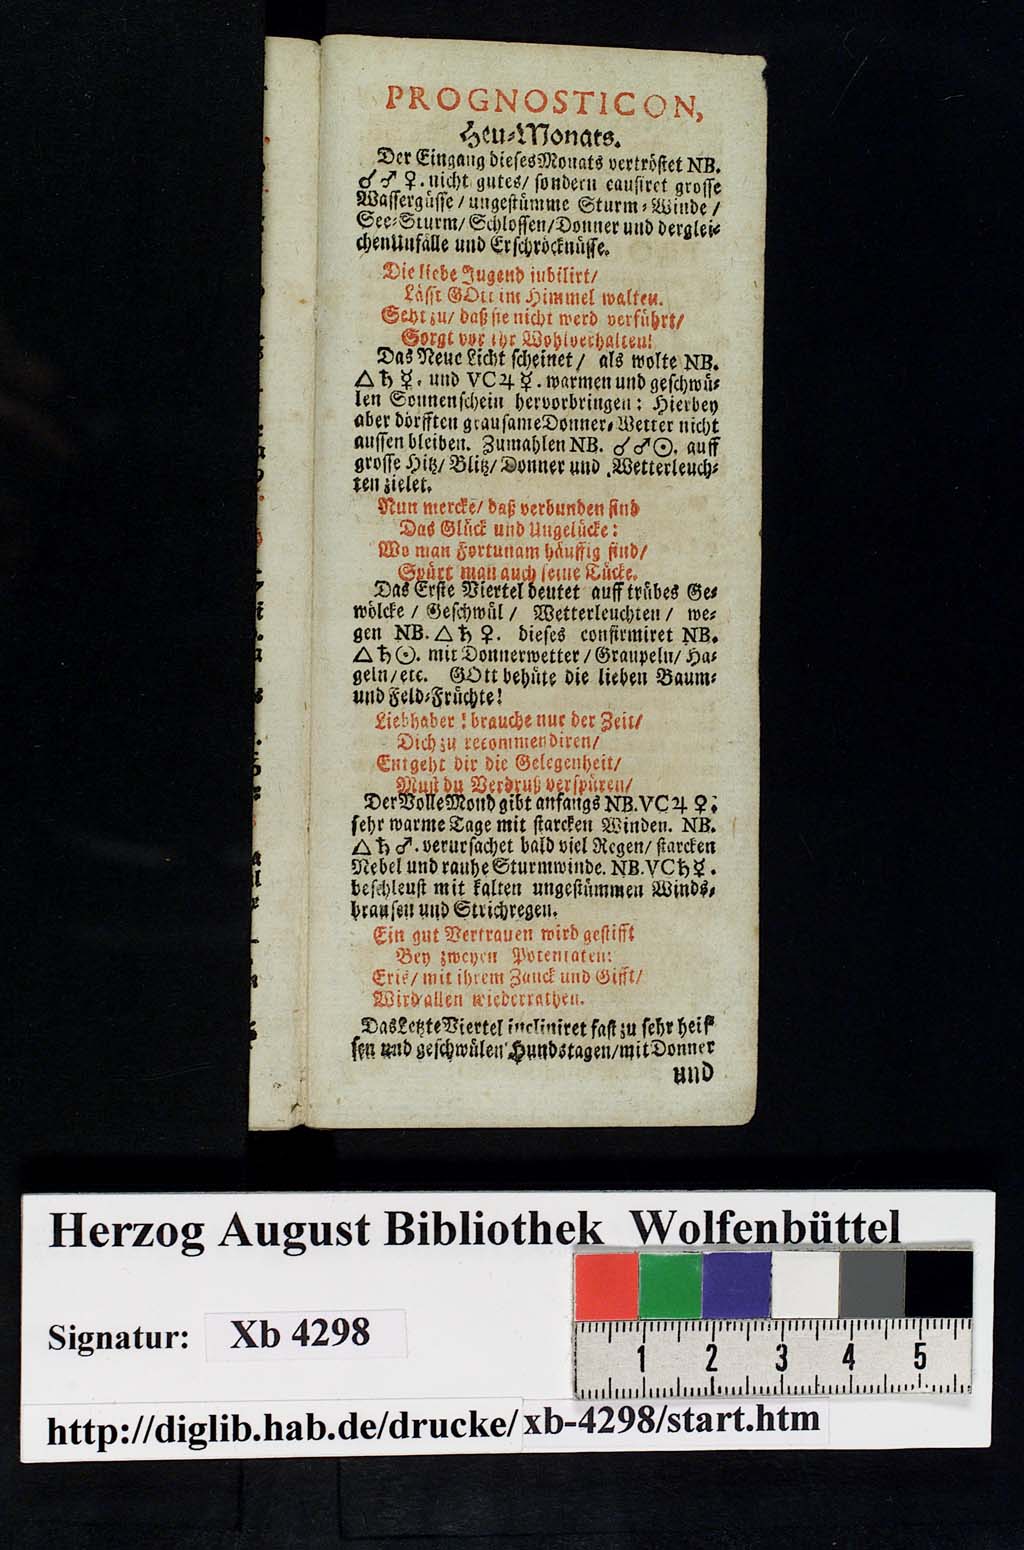 PROGNOSTICON,
Heu-Monats.
Der Eingang dieses Monats vertröstet NB.
☌ ♂ ♀. nicht gutes/ sondern causiret grosse
Wassergüsse/ ungestümme Sturm-Winde/
See-Sturm/ Schlossen/ Donner und derglei-
chen Unfälle und Erschröcknüsse.
Die liebe Jugend jubilirt/
Lässt GOtt im Himmel walten.
Seht zu/ daß sie nicht werd verführt/
Sorgt vor ihr Wohlverhalten!
Das Neue Licht scheinet/ als wolte NB.
△ ♄ ☿. und VC ♃ ☿. warmen und geschwü-
len Sonnenschein hervorbringen: Hierbey
aber dörfften grausame Donner-Wetter nicht
aussen bleiben. Zumahlen NB. ☌ ♂ ☉. auff
grosse Hitz/ Blitz/ Donner und Wetterleuch-
ten zielet.
Nun mercke/ daß verbunden sind
Das Glück und Ungelücke:
Wo man Fortunam häuffig find/
Spürt man auch seine Tücke.
Das Erste Viertel deutet auff trübes Ge-
wölcke/ Geschwül/ Wetterleuchten/ we-
gen NB. △ ♄ ♀. dieses confirmiret NB.
△ ♄ ☉. mit Donnerwetter/ Graupeln/ Ha-
geln/ etc. GOtt behüte die lieben Baum-
und Feld-Früchte!
Liebhaber! brauche nur der Zeit/
Dich zu recommendiren/
Entgeht dir die Gelegenheit/
Must du Verdruß verspüren/
Der Volle Mond gibt anfangs NB. VC ♃ ♀:
sehr warme Tage mit starcken Winden. NB.
△ ♄ ♂. verursachet bald viel Regen/ starcken
Nebel und rauhe Sturmwinde. NB. VC ♄ ☿.
beschleust mit kalten ungestümmen Winds-
brausen und Strichregen.
Ein gut Vertrauen wird gestifft
Bey zweyen Potentaten:
Eris/ mit ihrem Zanck und Gifft/
Wird allen wiederrathen.
Das Letzte Viertel incliniret fast zu sehr heis-
sen und geschwülen Hundstagen/ mit Donner
und
Herzog August Bibliothek Wolfenbüttel
Signatur: Xb 4298
1 2 3 4 5
http://diglib.hab.de/drucke/xb-4298/start.htm